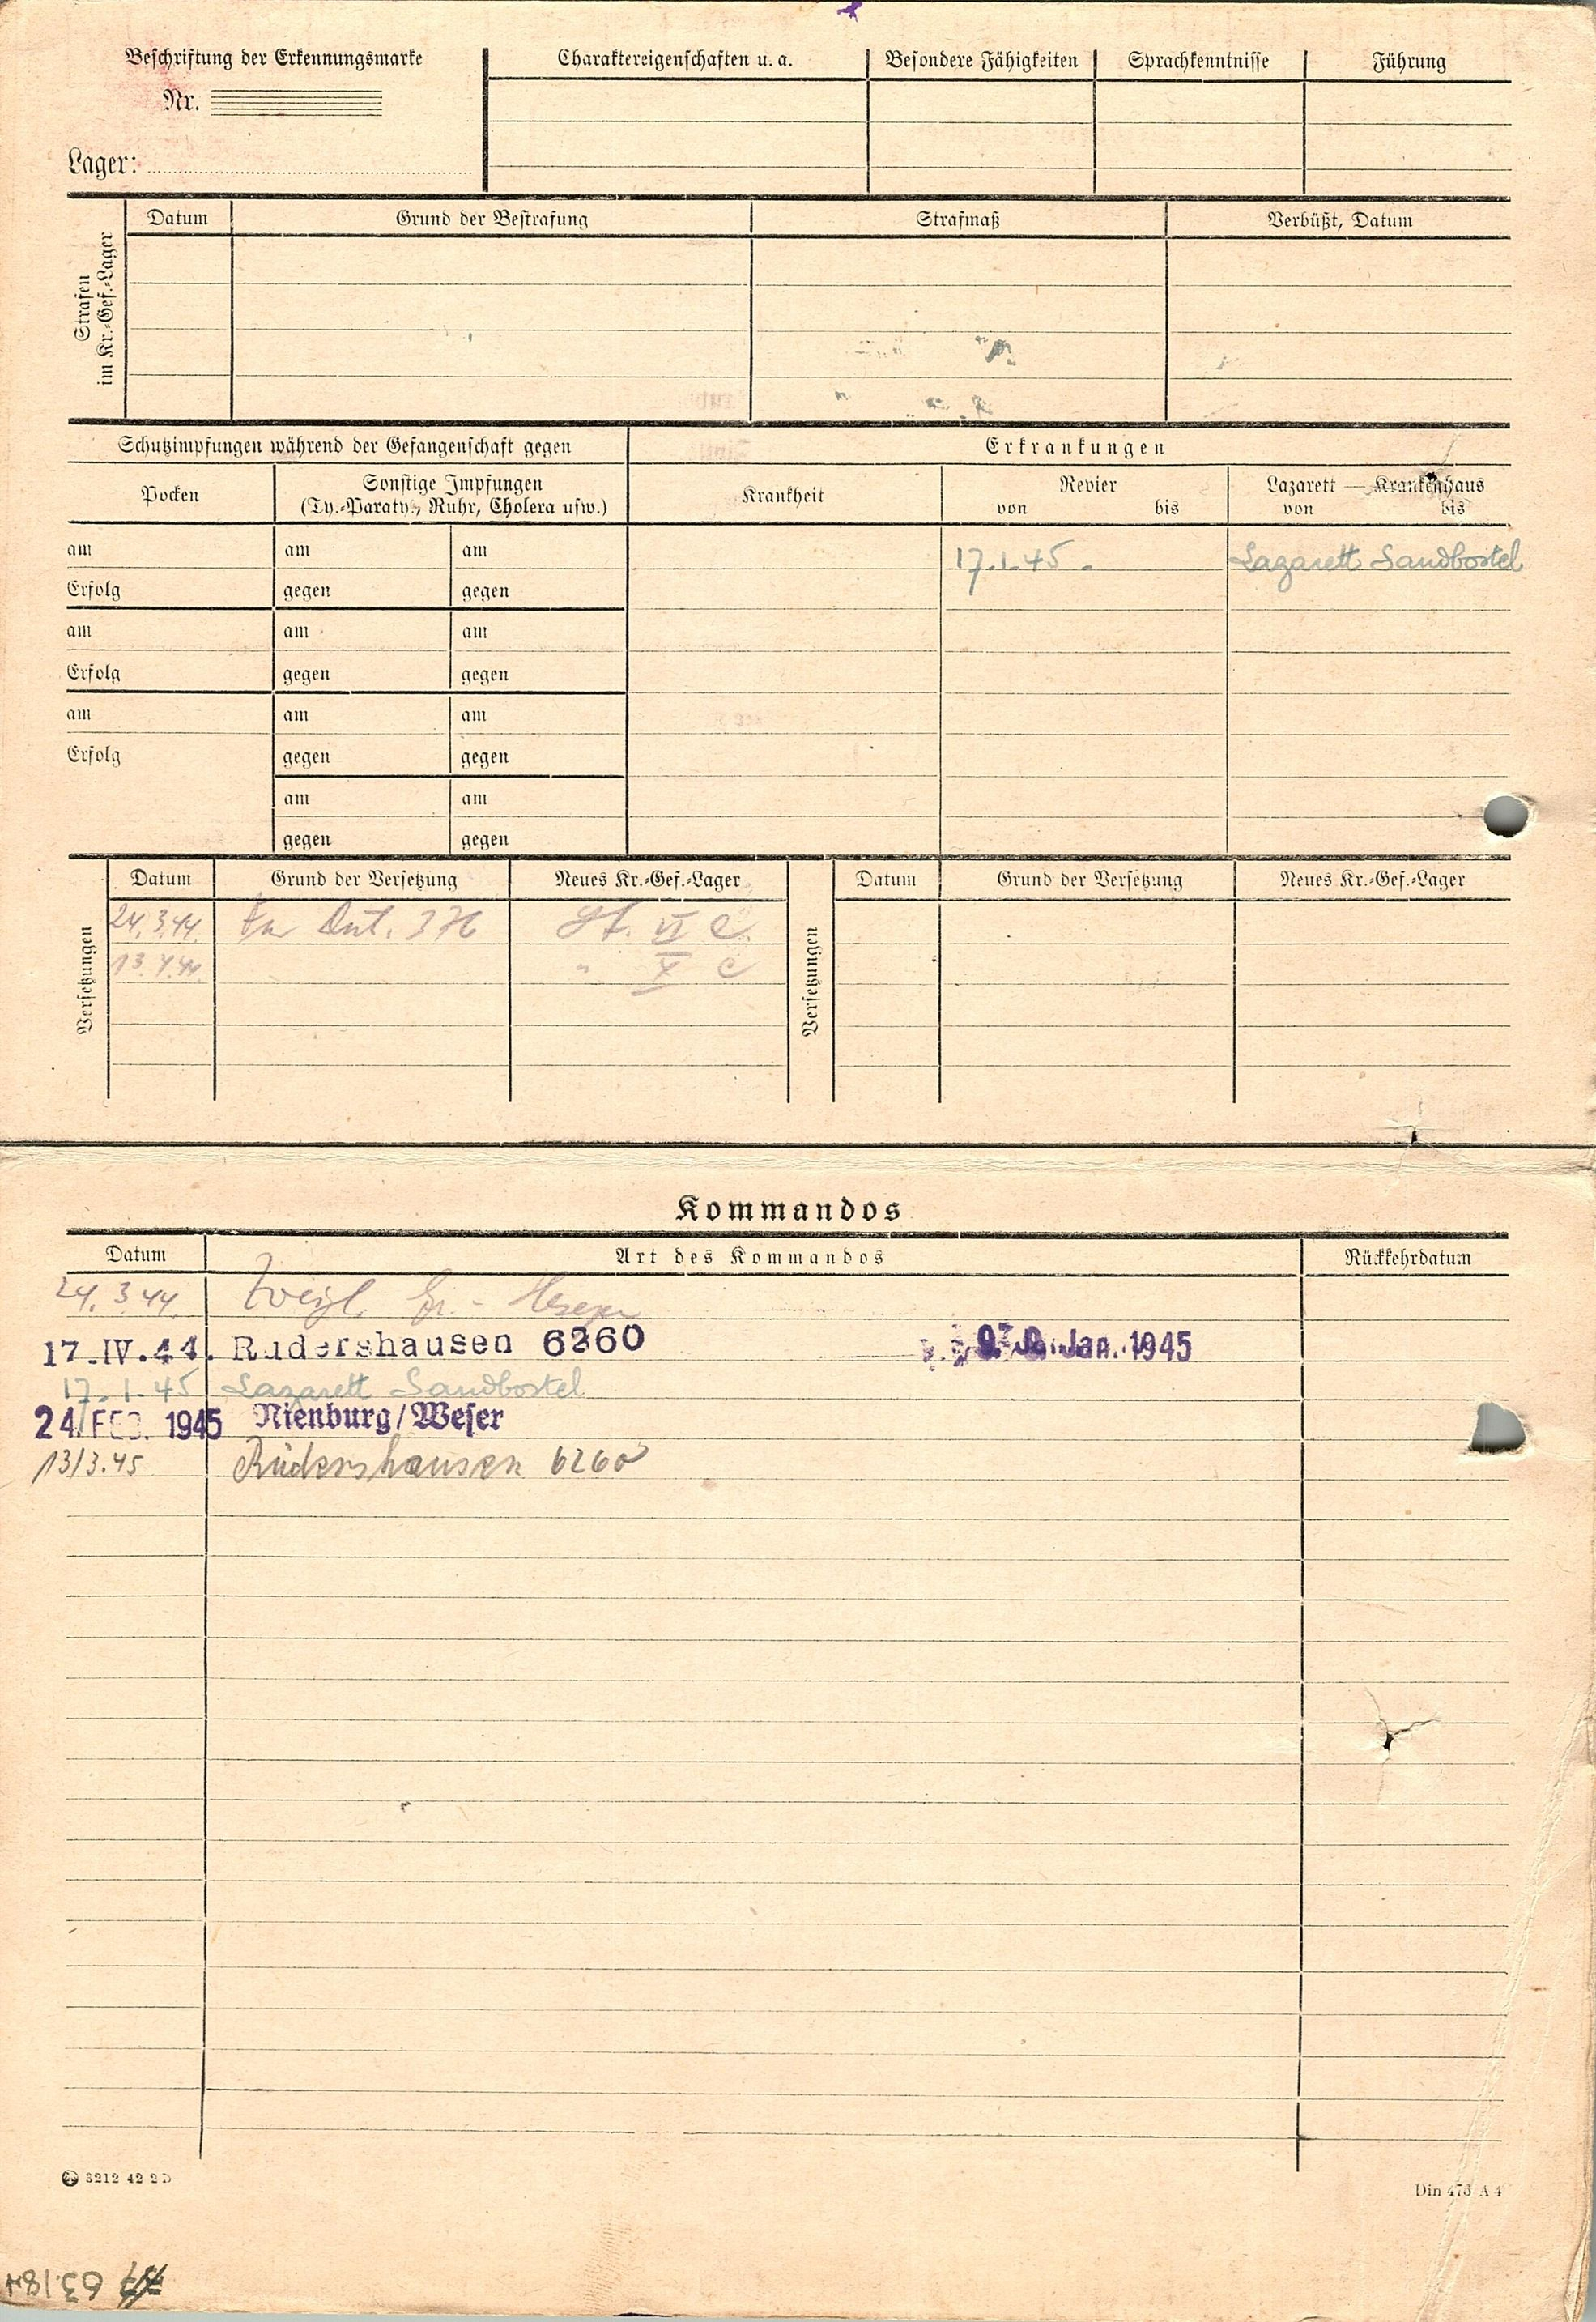 Beschriftung der Erkennungsmarke
Nr.
Lager:
Charaktereigenschaften u. a.
Besondere Fähigkeiten
Sprachkenntnisse
Führung
Strafen
im Kr.-Gef.-Lager
Datum
Grund der Bestrafung
Strafmaß
Verbüßt, Datum
Schutzimpfungen während der Gefangenschaft gegen
Erkrankungen
Pocken
Sonstige Impfungen
(Ty.-Paraty., Ruhr, Cholera usw.)
Krankheit
Revier
von bis
Lazarett — Krankenhaus
von bis
am am am 17.1.45. Lazarett Sandbostel
Erfolg gegen gegen
am am am
Erfolg gegen gegen
am am am
Erfolg gegen gegen
am am
gegen gegen
Versetzungen
Datum Grund der Versetzung Neues Kr.-Gef.-Lager
24.3.44. 376 St. VI C.
13.4.44. " X C
Versetzungen
Datum Grund der Versetzung Neues Kr.-Gef.-Lager
Kommandos
Datum Art des Kommandos Rückkehrdatum
24.3.44.
17.IV.44. Rudershausen 6260 Jan. 1945
17.1.45 Lazarett Sandbostel
24. FEB. 1945 Nienburg/Weser
13/3.45 Rüdershausen 6260
3212 42 2 D
Din 476 A 4